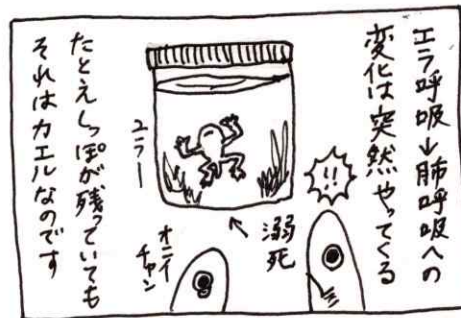 エラ呼吸→肺呼吸への
変化は突然やってくる
!!
溺死
ユラー
オニイ
チャン
たとえしっぽが残っていても
それはカエルなのです